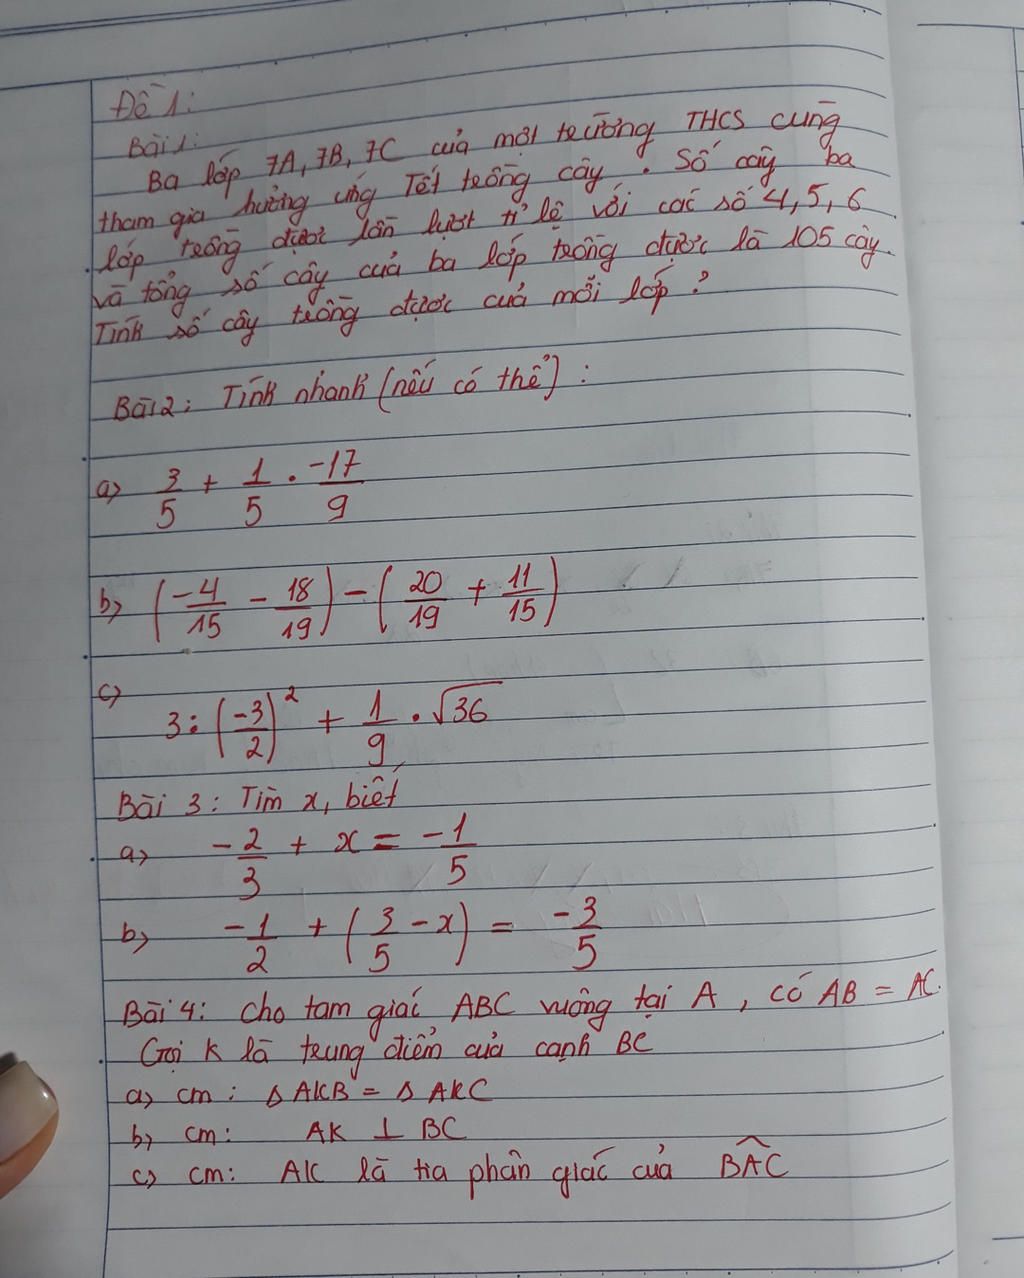 Đề 1:
Bài 1:
Ba lớp 7A, 7B, 7C của một trường THCS cùng
tham gia hưởng ứng Tết trồng cây. Số cây ba
lớp trồng được lần lượt tỉ lệ với các số 4, 5, 6
và tổng số cây của ba lớp trồng được là 105 cây.
Tính số cây trồng được của mỗi lớp?
Bài 2: Tính nhanh (nếu có thể):
a) 3/5 + 1/5 . -17/9
b) (-4/15 - 18/19) - (20/19 + 11/15)
c) 3 : (-3/2)² + 1/9 . √36
Bài 3: Tìm x, biết
a) -2/3 + x = -1/5
b) -1/2 + (3/5 - x) = -3/5
Bài 4: Cho tam giác ABC vuông tại A, có AB = AC.
Gọi K là trung điểm của cạnh BC
a) cm: Δ AKB = Δ AKC
b) cm: AK ⊥ BC
c) cm: AK là tia phân giác của BAC